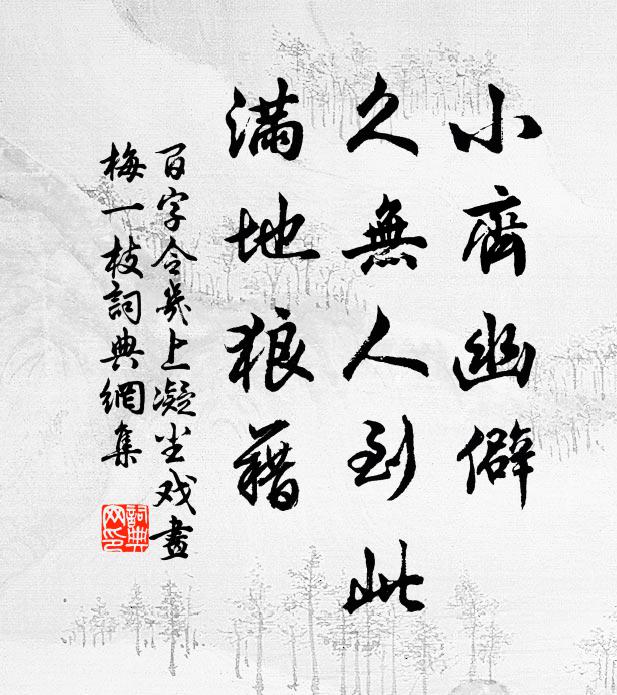 小齊幽僻
久無人到此
滿地狼藉
百字令幾上凝尘戏畫
梅一枝詞典網集
詞典网印